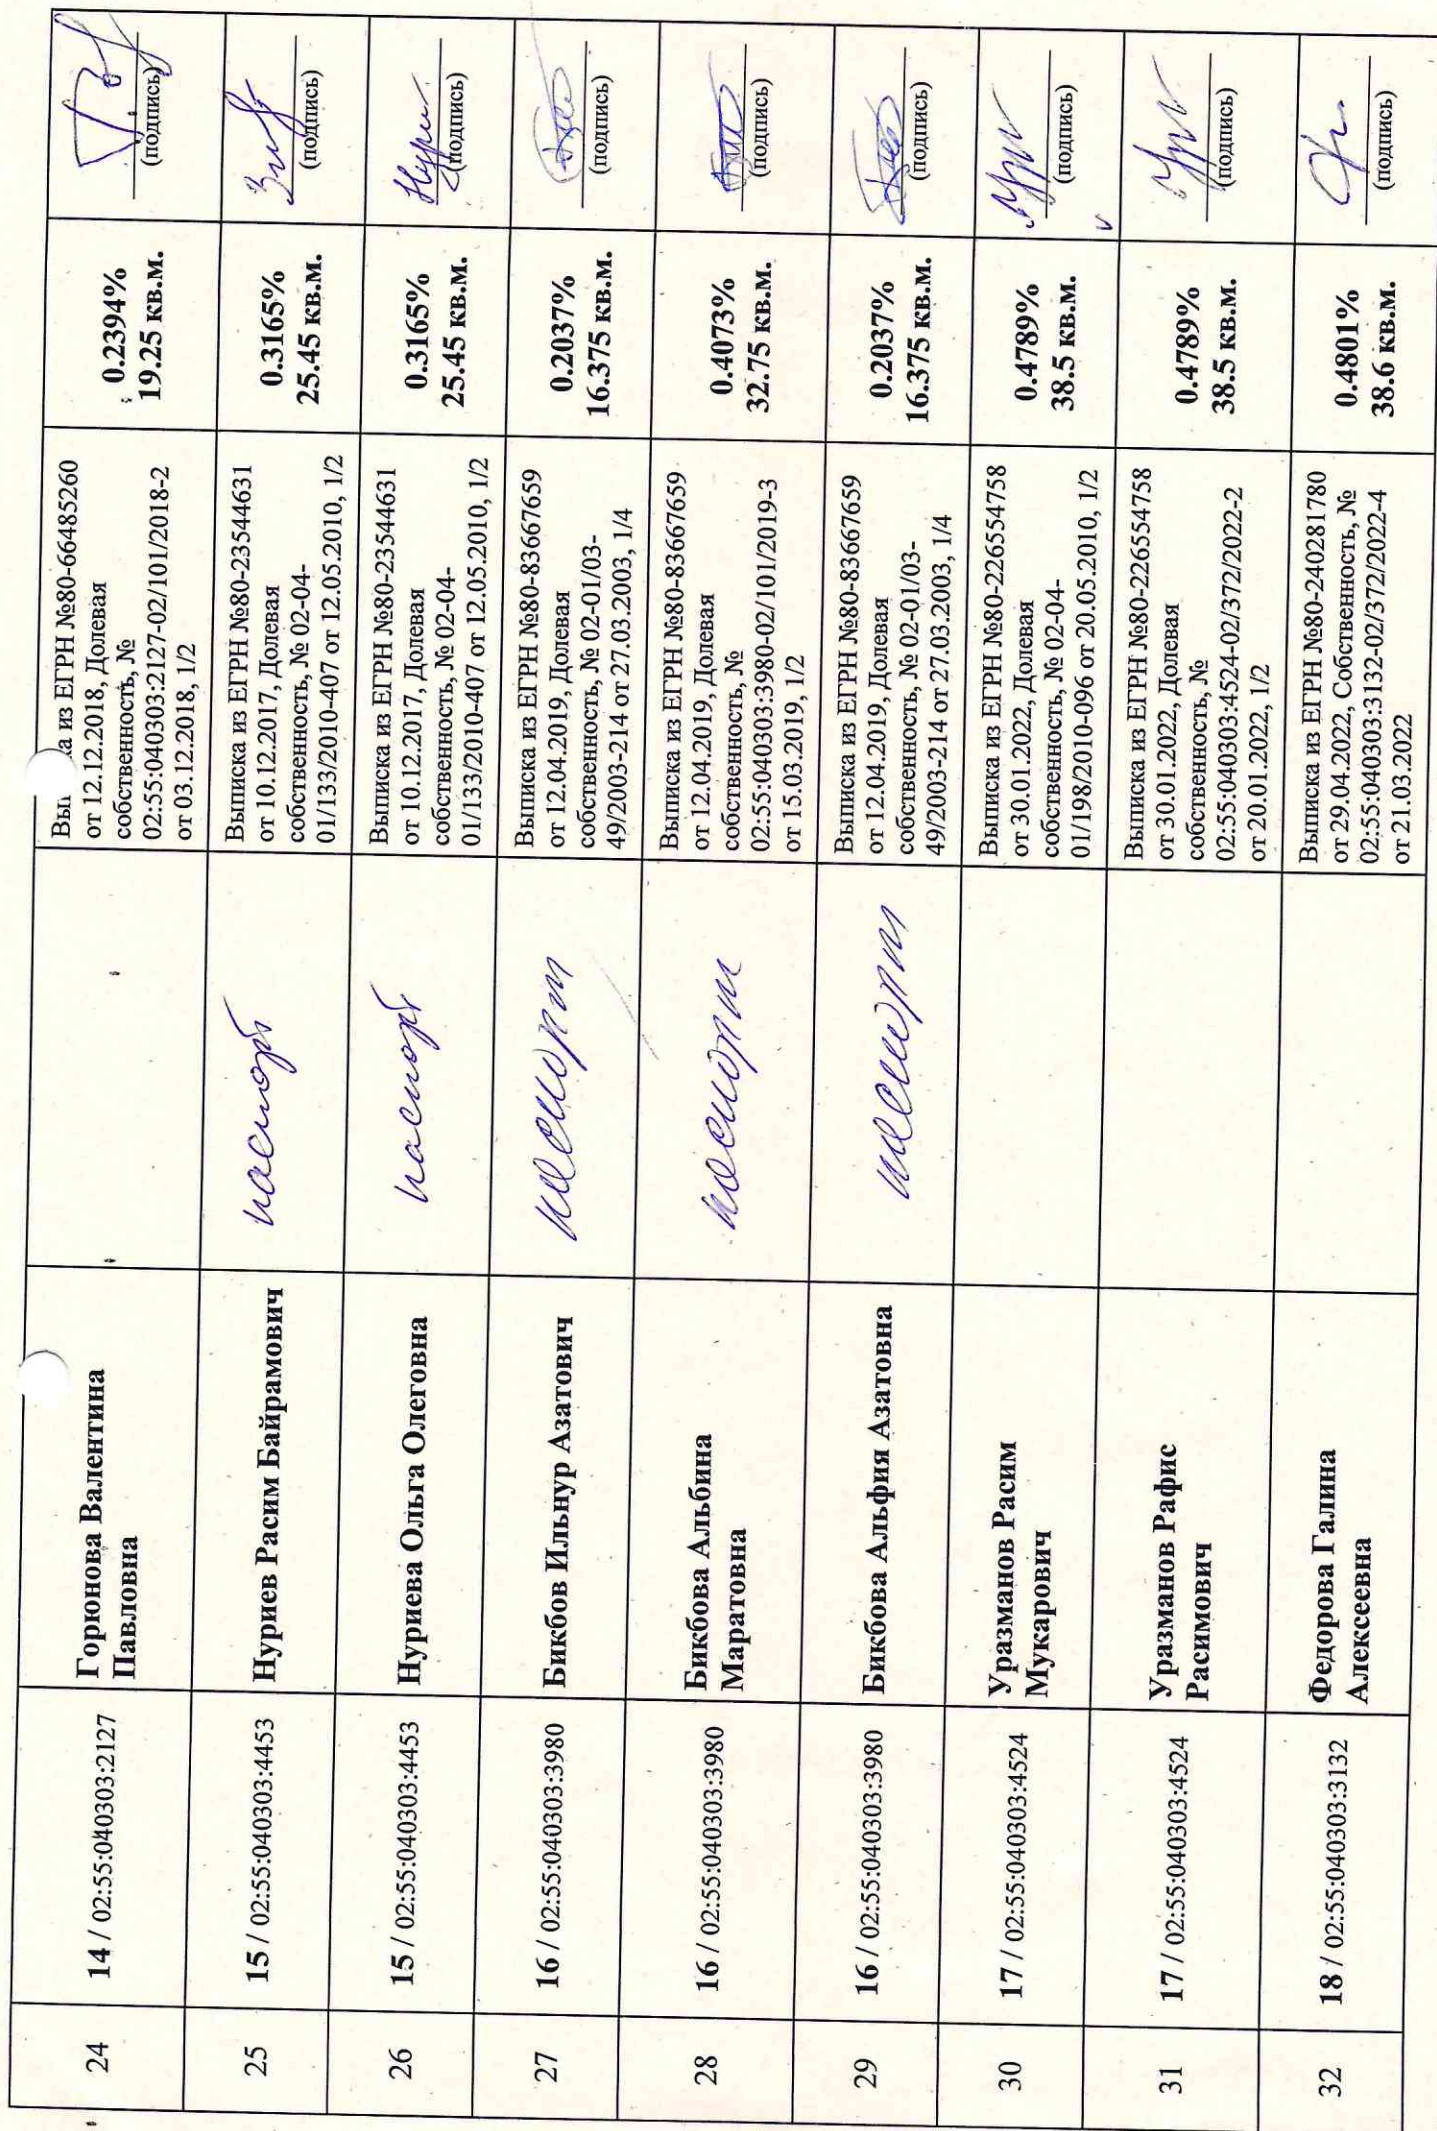 24
14 / 02:55:040303:2127
Горюнова Валентина
Павловна
из ЕГРН №80-66485260
от 12.12.2018, Долевая
собственность, №
02:55:040303:2127-02/101/2018-2
от 03.12.2018, 1/2
0.2394%
19.25 кв.м.
(подпись)
25
15 / 02:55:040303:4453
Нуриев Расим Байрамович
паспорт
Выписка из ЕГРН №80-23544631
от 10.12.2017, Долевая
собственность, № 02-04-
01/133/2010-407 от 12.05.2010, 1/2
0.3165%
25.45 кв.м.
(подпись)
26
15 / 02:55:040303:4453
Нуриева Ольга Олеговна
паспорт
Выписка из ЕГРН №80-23544631
от 10.12.2017, Долевая
собственность, № 02-04-
01/133/2010-407 от 12.05.2010, 1/2
0.3165%
25.45 кв.м.
(подпись)
27
16 / 02:55:040303:3980
Бикбов Ильнур Азатович
паспорт
Выписка из ЕГРН №80-83667659
от 12.04.2019, Долевая
собственность, № 02-01/03-
49/2003-214 от 27.03.2003, 1/4
0.2037%
16.375 кв.м.
(подпись)
28
16 / 02:55:040303:3980
Бикбова Альбина
Маратовна
паспорт
Выписка из ЕГРН №80-83667659
от 12.04.2019, Долевая
собственность, №
02:55:040303:3980-02/101/2019-3
от 15.03.2019, 1/2
0.4073%
32.75 кв.м.
(подпись)
29
16 / 02:55:040303:3980
Бикбова Альфия Азатовна
паспорт
Выписка из ЕГРН №80-83667659
от 12.04.2019, Долевая
собственность, № 02-01/03-
49/2003-214 от 27.03.2003, 1/4
0.2037%
16.375 кв.м.
(подпись)
30
17 / 02:55:040303:4524
Уразманов Расим
Мукарович
Выписка из ЕГРН №80-226554758
от 30.01.2022, Долевая
собственность, № 02-04-
01/198/2010-096 от 20.05.2010, 1/2
0.4789%
38.5 кв.м.
(подпись)
31
17 / 02:55:040303:4524
Уразманов Рафис
Расимович
Выписка из ЕГРН №80-226554758
от 30.01.2022, Долевая
собственность, №
02:55:040303:4524-02/372/2022-2
от 20.01.2022, 1/2
0.4789%
38.5 кв.м.
(подпись)
32
18 / 02:55:040303:3132
Федорова Галина
Алексеевна
Выписка из ЕГРН №80-240281780
от 29.04.2022, Собственность, №
02:55:040303:3132-02/372/2022-4
от 21.03.2022
0.4801%
38.6 кв.м.
(подпись)